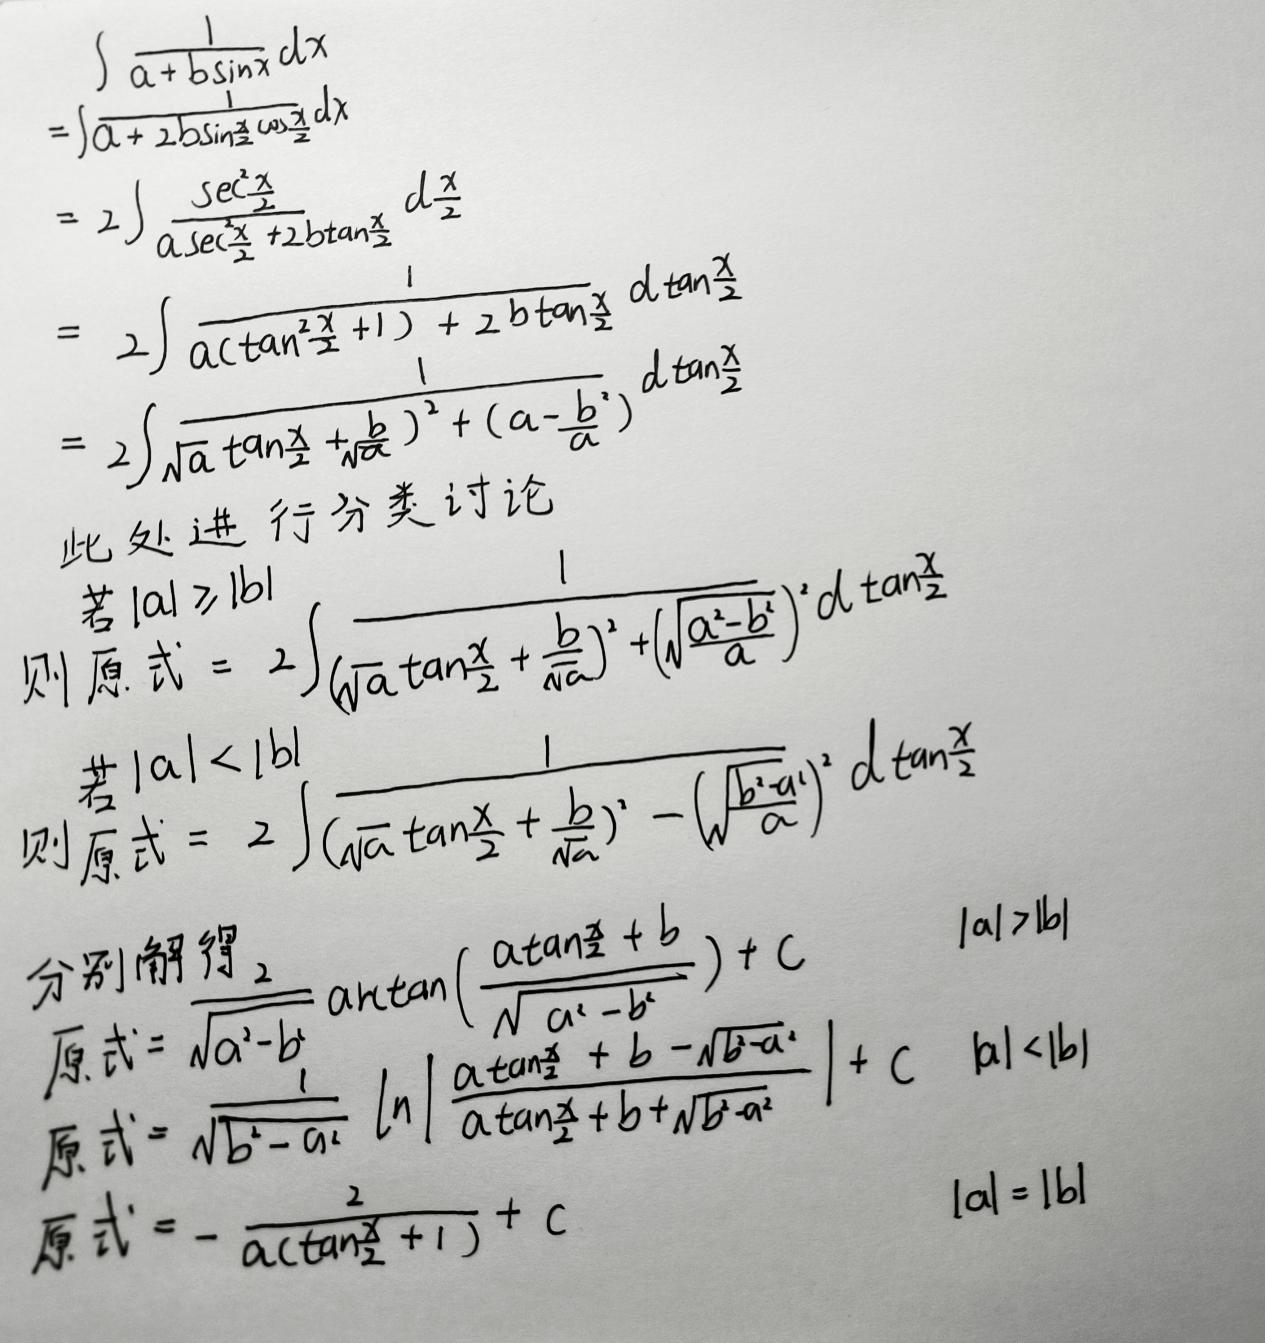 ∫ 1/(a+bsinx) dx
=∫ 1/(a+2bsin x/2 cos x/2) dx
= 2∫ sec² x/2 /(a sec² x/2 +2btan x/2) d x/2
= 2∫ 1/(a(tan² x/2 +1) + 2btan x/2) d tan x/2
= 2∫ 1/(√a tan x/2 + b/√a)² + (a - b²/a) d tan x/2
此处进行分类讨论
若|a|≥|b|
则原式 = 2∫ 1/((√a tan x/2 + b/√a)² + (√((a²-b²)/a))²) d tan x/2
若|a|<|b|
则原式 = 2∫ 1/((√a tan x/2 + b/√a)² - (√((b²-a²)/a))²) d tan x/2
分别解得
原式= 2/√(a²-b²) arctan((a tan x/2 + b)/√(a²-b²)) + C |a|>|b|
原式= 1/√(b²-a²) ln|(a tan x/2 + b - √(b²-a²))/(a tan x/2 + b + √(b²-a²))| + C |a|<|b|
原式= - 2/(a(tan x/2 + 1)) + C |a|=|b|